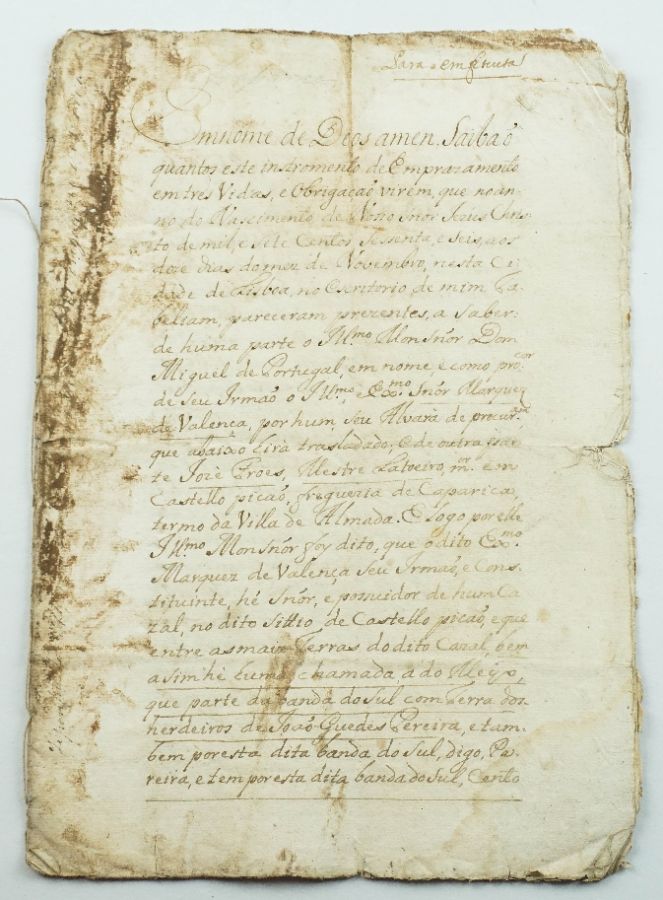 Para o emfiteuta
Em nome de Deos amen. Saibaõ
quantos este instromento de Emprazamento
em tres Vidas, e Obrigaçaõ virem, que no an-
no do Nascimento de Nosso Snór Jezus Chris-
to de mil, e Sete Centos Sessenta, e Seis, aos
doze dias do mez de Novembro, nesta Ci-
dade de Lisboa, no Escritorio, de mim Ta-
beliam, pareceram prezentes, a Saber-
de huma parte o Ill.mo MonSnór Dom
Miguel de Portugal, em nome, e como pro.cor
de Seu Irmaõ o Ill.mo, e Ex.mo Snór Marquez
de Valença, por hum, Seu Alvará de procur.
que abaixo hirá trasladado, E de outra par-
te Jozé Froes, Mestre Latoeiro, m.or em
Castello picaõ, freguezia de Caparica,
termo da Villa de Almada. E logo por elle
Ill.mo MonSnór foy dito, que o dito Ex.mo
Marquez de Valença Seu Irmaõ, e Cons-
tituinte, hé Snór, e possuidor de hum Ca-
zal, no dito Sittio, de Castello picaõ, e que
entre as mais Terras do dito Cazal, bem
asim hé huma, chamada, a do Meyo,
que parte da banda do Sul com Terra dos
herdeiros de Joaõ Guedes Pereira, e tam-
bem por esta dita banda do Sul, digo, Pe-
reira, e tem por esta dita banda do Sul, Cento